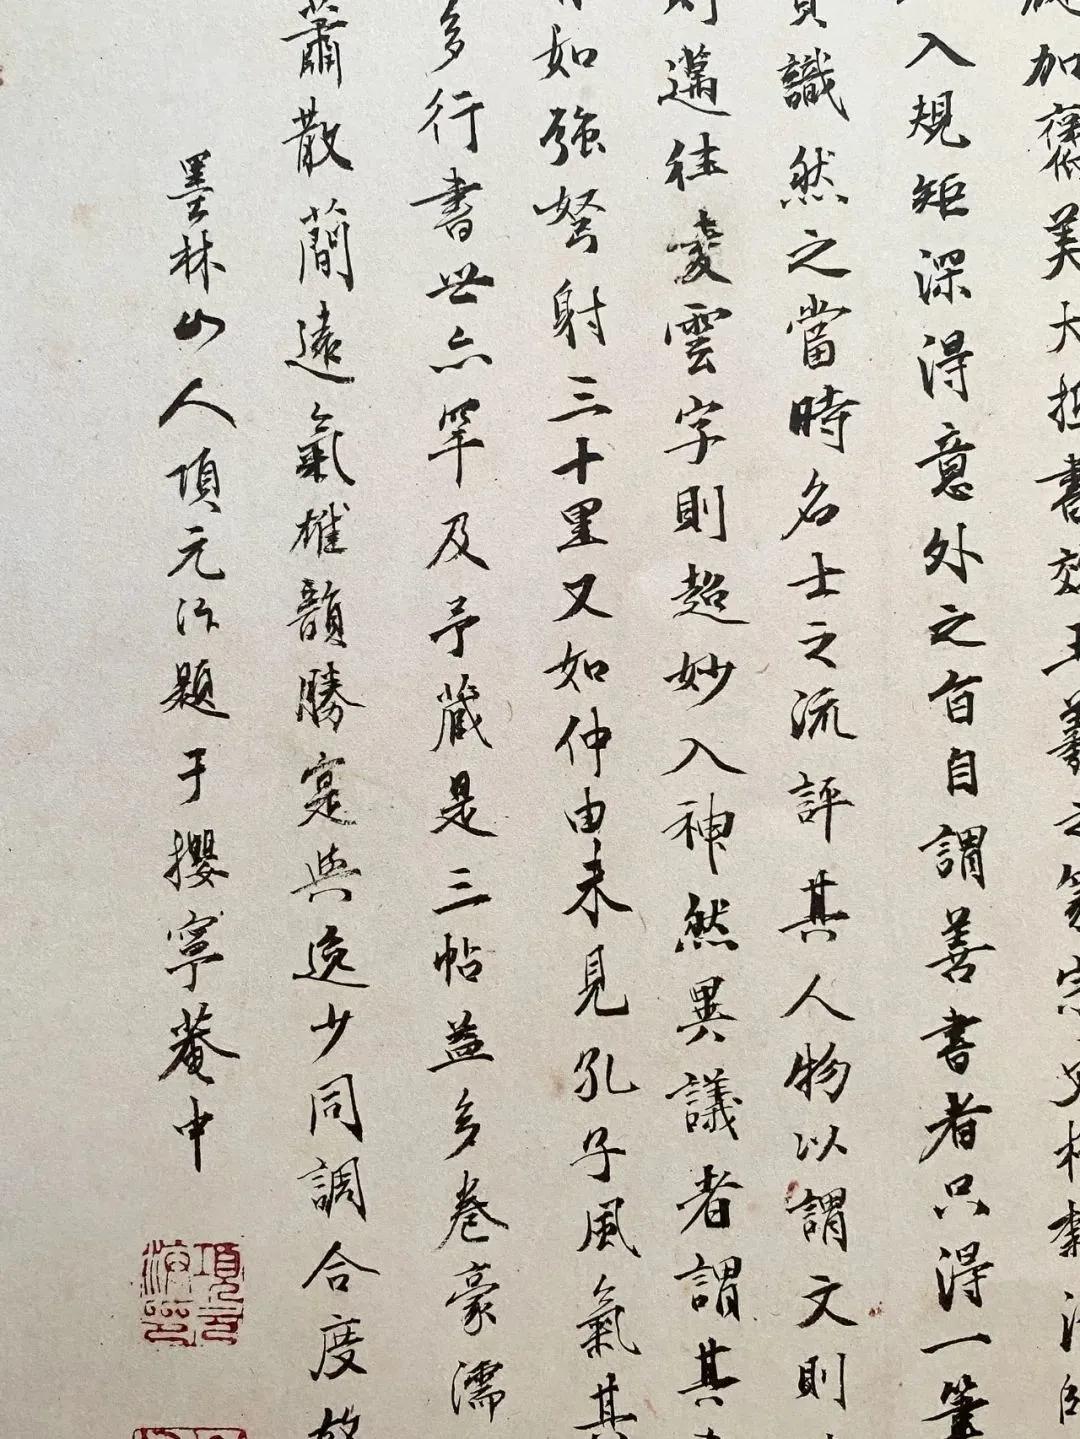 加襃美大抵書效王羲之篆宗史籀隸法師
入規矩深淂意外之旨自謂善書者只淂一筆
識然之當時名士之流評其人物以謂文則
則邁往凌雲字則超妙入神然異議者謂其
如強弩射三十里又如仲由未見孔子風氣其
多行書世亦罕及予藏是三帖益多卷豪濡
蕭散簡遠氣雄韻勝寔與逸少同調合度故
墨林山人項元汴題于攖寧菴中
項元汴印